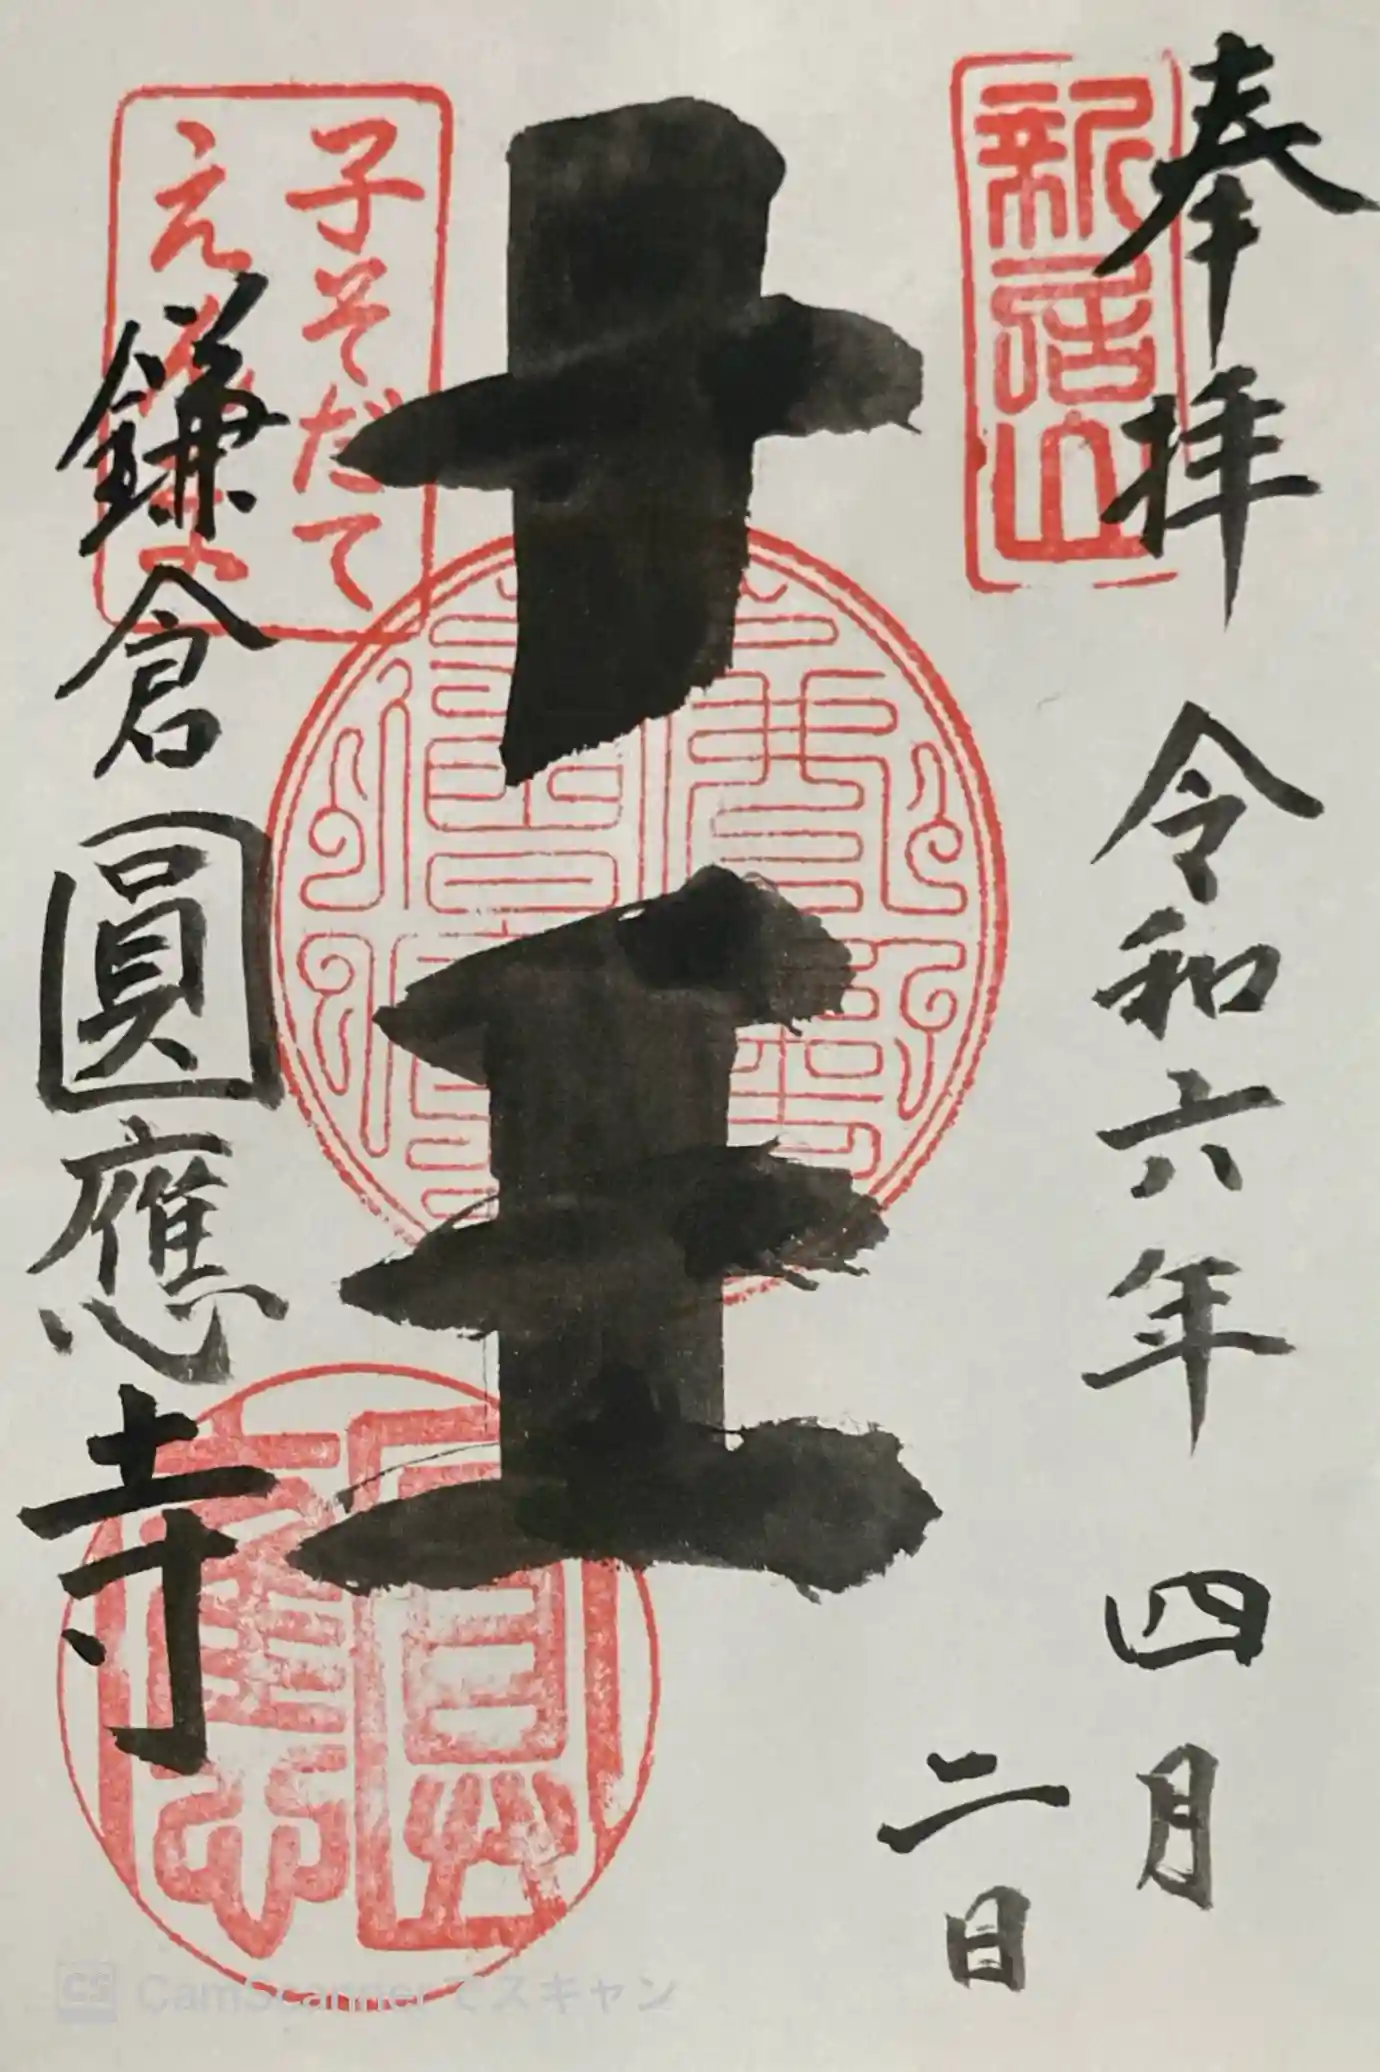 奉拝 令和六年 四月
二日
新居山
十王
子そだて
えんま
鎌倉圓應寺
CS CamScannerでスキャン